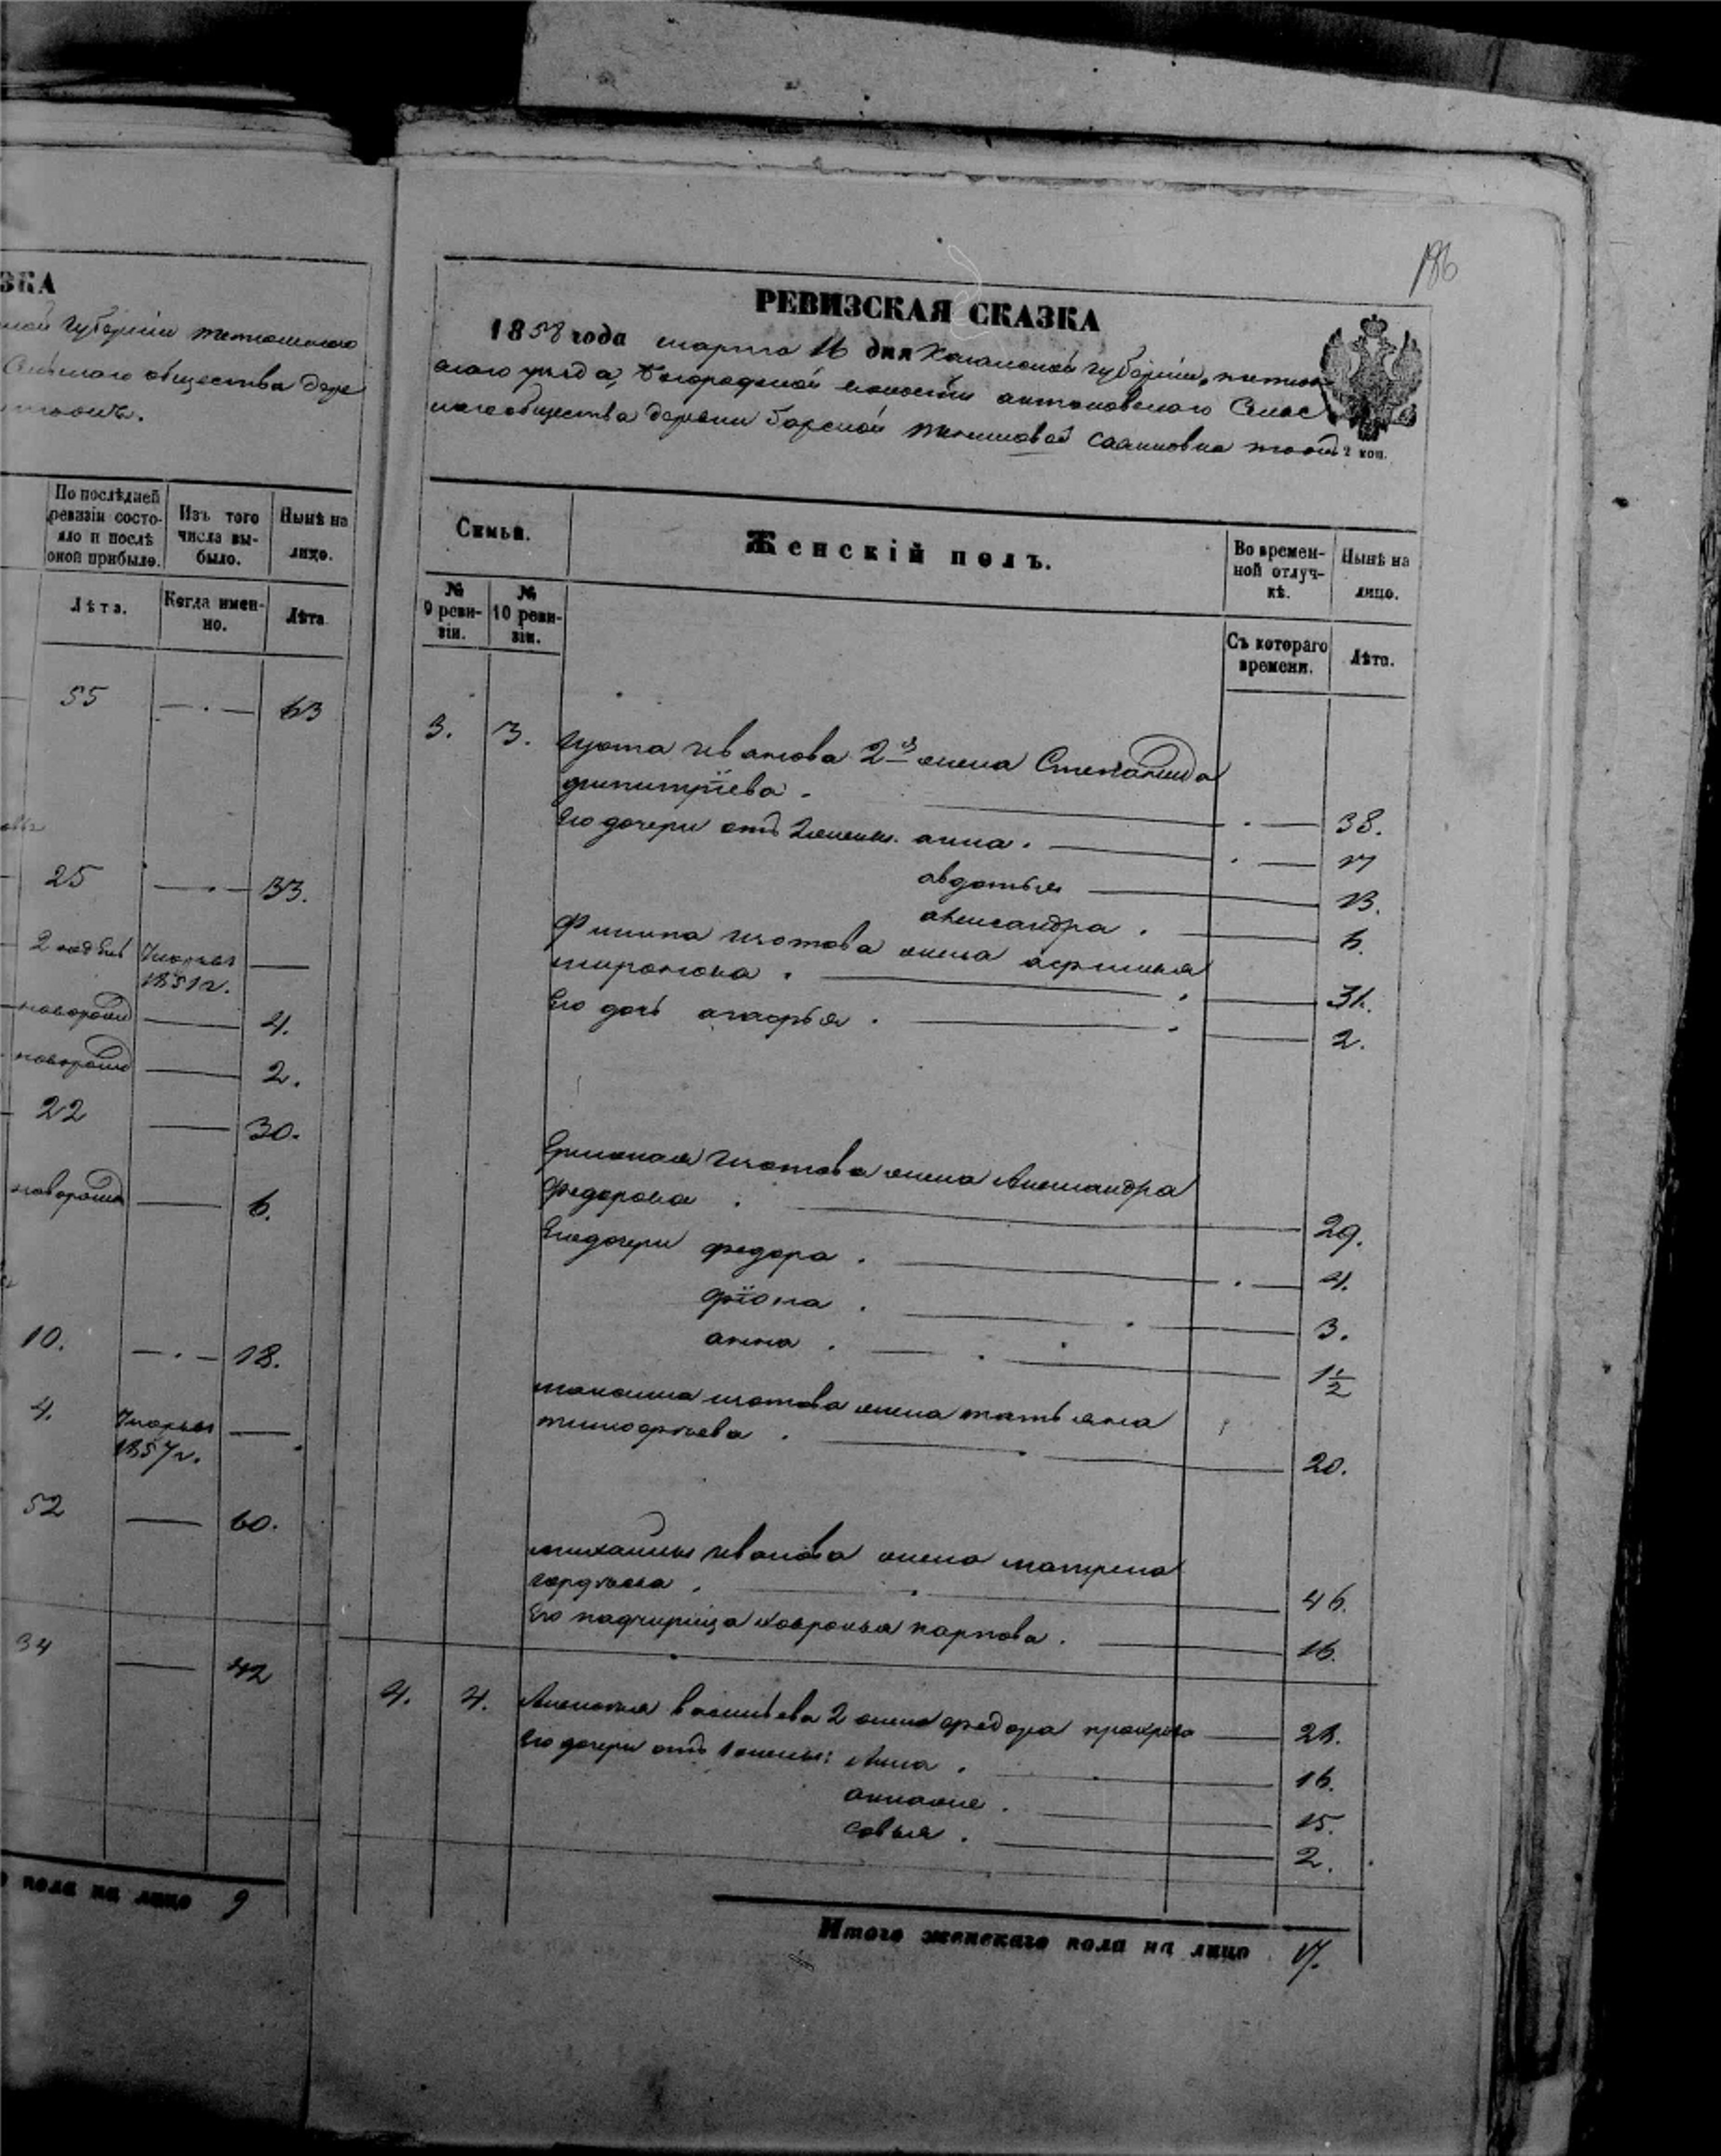 ЗКА
ной губерніи тетюшскаго
Сельскаго общества дере
По послѣдней ревизіи состояло и послѣ оной прибыло.
Изъ того числа выбыло.
Нынѣ на лицо.
Лѣта.
Когда именно.
Лѣта
55 63
25 33.
2 1851г.
новорожд 4.
новорожд 2.
22 30.
новорожд 6.
10. 18.
4. 1857г.
52 60.
34 42
пола на лицо 9
186
РЕВИЗСКАЯ СКАЗКА
1858 года марта 16 дня Казанской губерніи, тетюш
скаго уѣзда, Богородской волости антоновскаго Сельс
каго общества деревни Барской
2 коп.
Семьи.
Женскій полъ.
Во временной отлучкѣ.
Нынѣ на лицо.
№ 9 ревизіи.
№ 10 ревизіи.
Съ котораго времени.
Лѣта.
3. 3. Изота Иванова 2я жена Степанида
димитріева. 38.
Его дочери отъ 2 жены. анна. 17
авдотья 13.
александра. 6.
Филипа изотова жена афимья
миронова. 31.
Его дочь агафья. 2.
Ермолая Изотова жена Александра
федорова. 29.
Его дочери федора. 4.
фіона. 3.
анна. 1 1/2
изотова жена татьяна
тимофеева. 20.
михаилы Иванова жена матрена
гордѣева. 46.
Его падчерица хавронья карпова. 16.
4. 4. Алексѣя васильева 2 жена федора 28.
Его дочери отъ 1 жены: Анна. 16.
15.
совья. 2.
Итого женскаго пола на лицо 17.